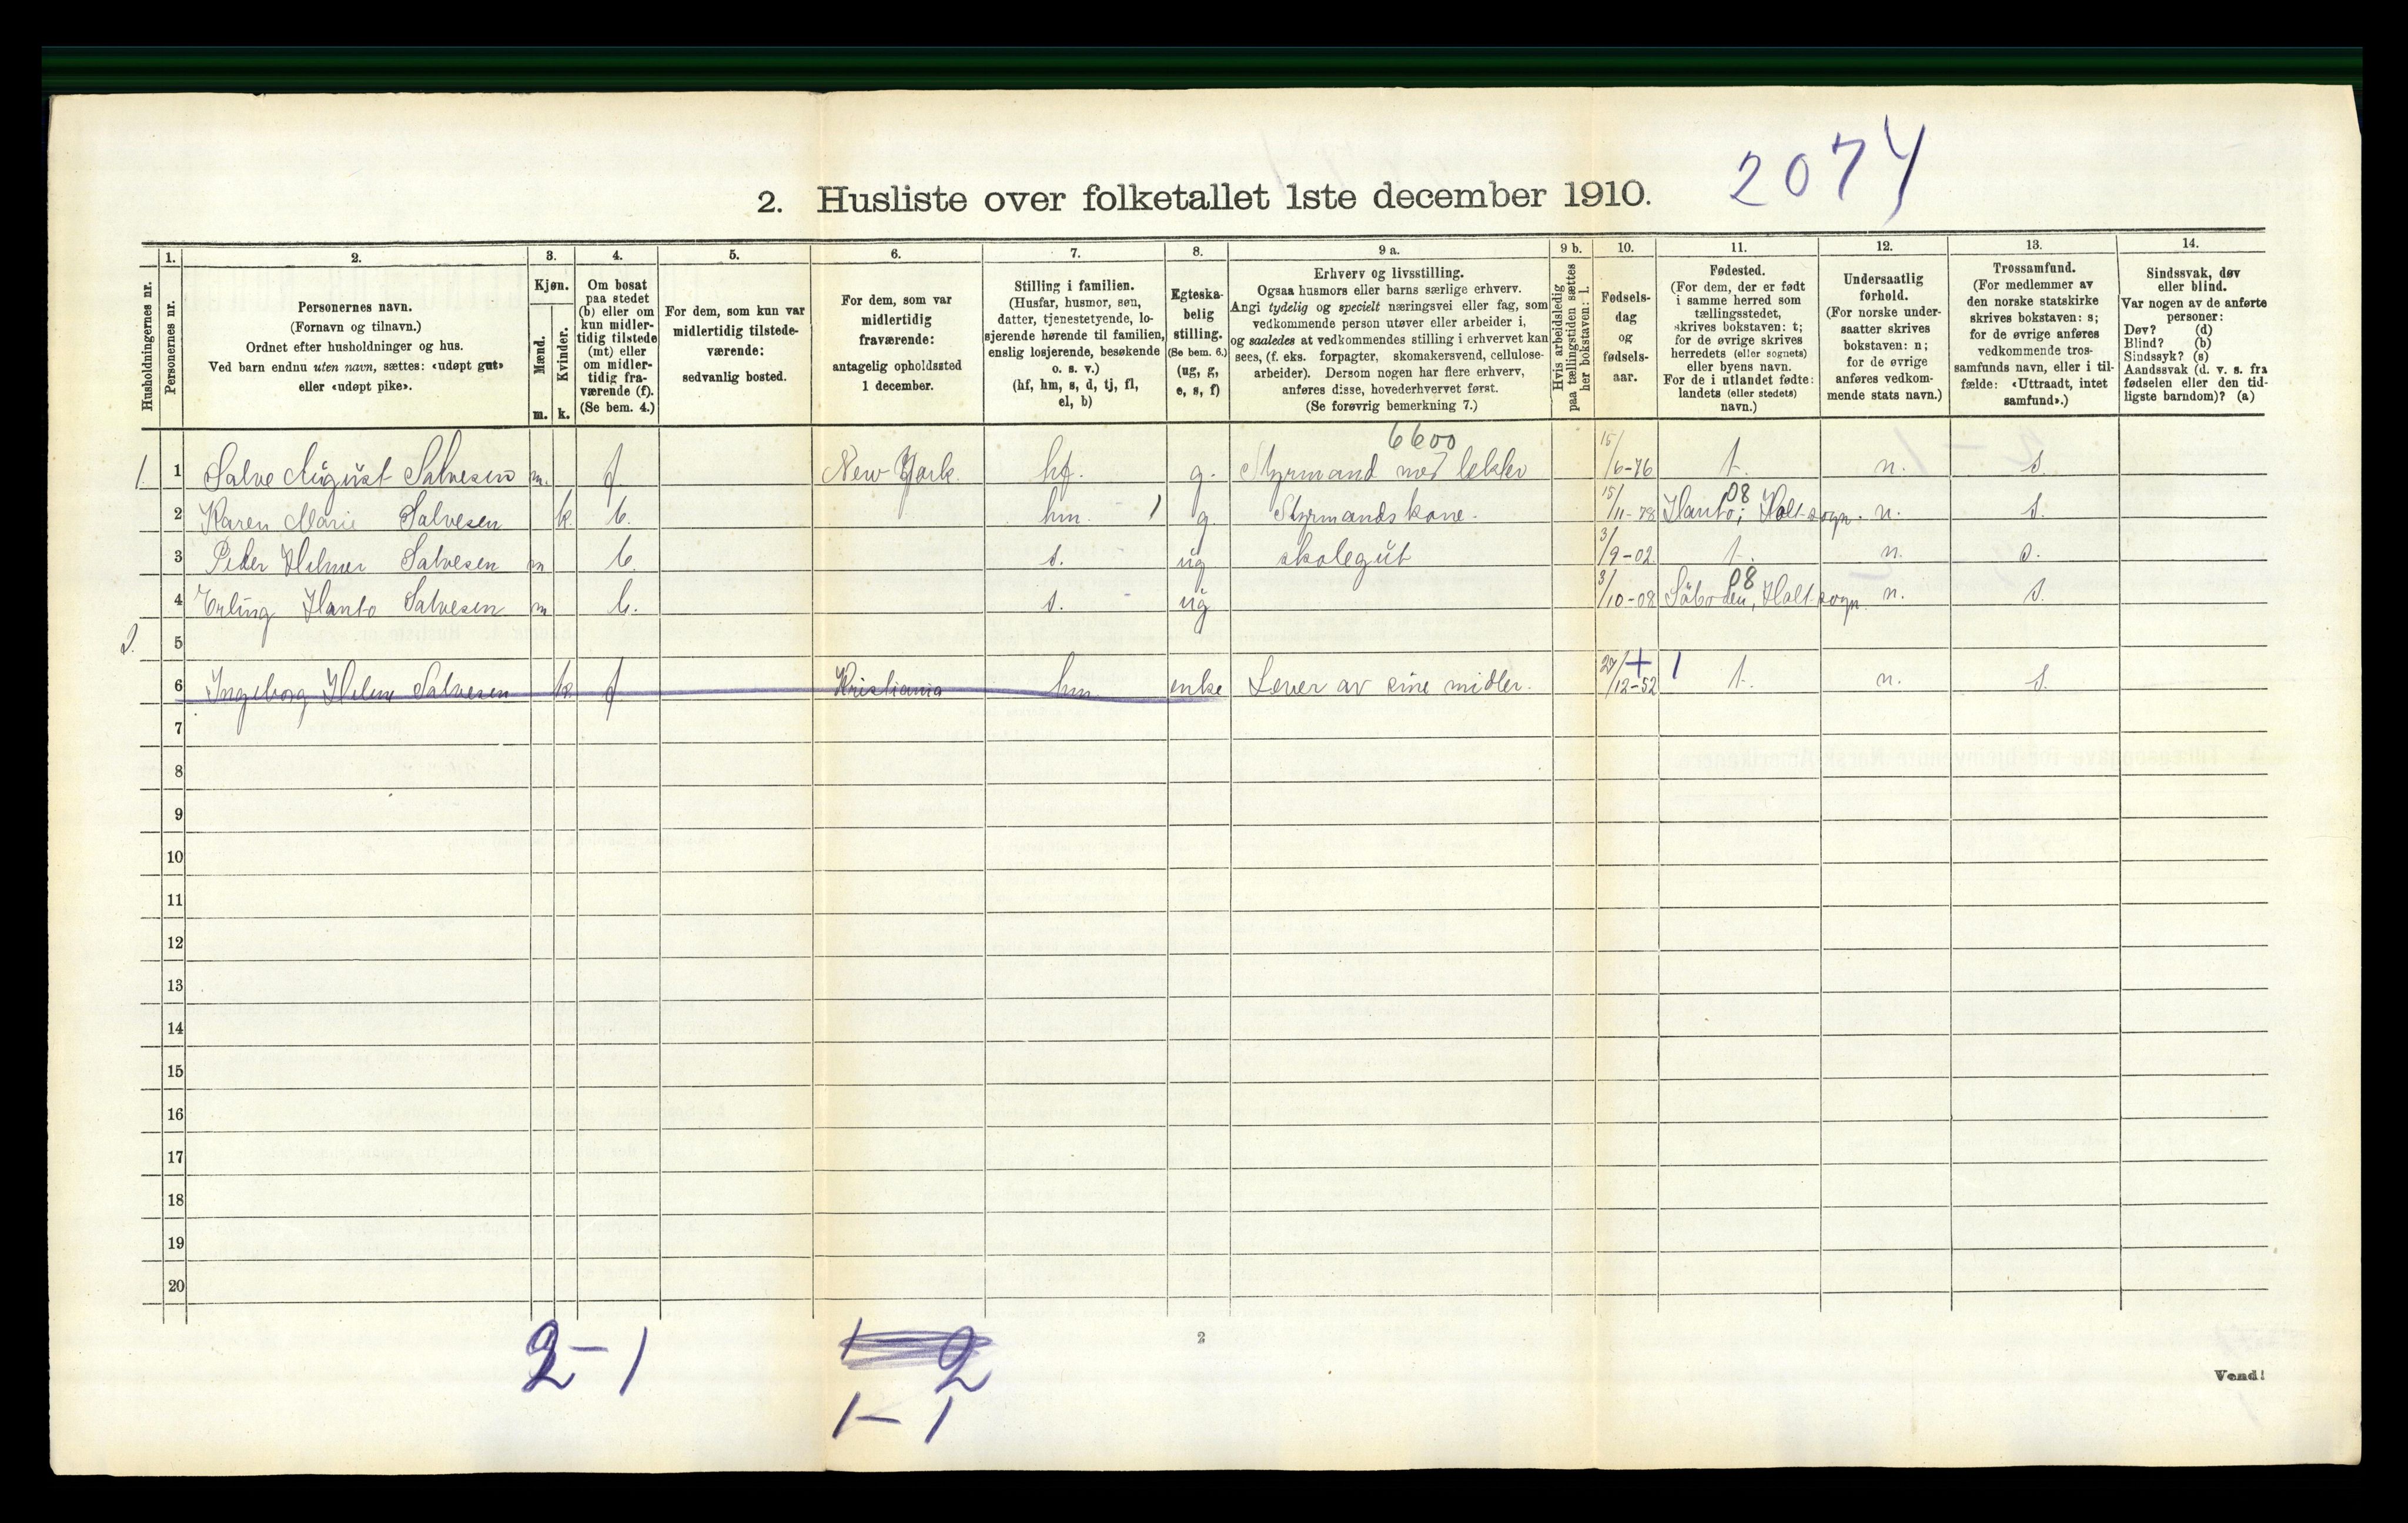 2074
2. Husliste over folketallet 1ste december 1910.
Husholdningernes nr.
1. Personernes nr.
2. Personernes navn.
(Fornavn og tilnavn.)
Ordnet efter husholdninger og hus.
Ved barn endnu uten navn, sættes: «udøpt gut»
eller «udøpt pike».
3. Kjøn.
Mænd. m.
Kvinder. k.
4. Om bosat
paa stedet
(b) eller om
kun midler-
tidig tilstede
(mt) eller
om midler-
tidig fra-
værende (f).
(Se bem. 4.)
5. For dem, som kun var
midlertidig tilstede-
værende:
sedvanlig bosted.
6. For dem, som var
midlertidig
fraværende:
antagelig opholdssted
1 december.
7. Stilling i familien.
(Husfar, husmor, søn,
datter, tjenestetyende, lo-
sjerende hørende til familien,
enslig losjerende, besøkende
o. s. v.)
(hf, hm, s, d, tj, fl,
el, b)
8. Egteska-
belig
stilling.
(Se bem. 6.)
(ug, g,
e, s, f)
9 a. Erhverv og livsstilling.
Ogsaa husmors eller barns særlige erhverv.
Angi tydelig og specielt næringsvei eller fag, som
vedkommende person utøver eller arbeider i,
og saaledes at vedkommendes stilling i erhvervet kan
sees, (f. eks. forpagter, skomakersvend, cellulose-
arbeider). Dersom nogen har flere erhverv,
anføres disse, hovederhvervet først.
(Se forøvrig bemerkning 7.)
9 b. Hvis arbeidsledig
paa tællingstiden sættes
her bokstaven: l.
10. Fødsels-
dag
og
fødsels-
aar.
11. Fødested.
(For dem, der er født
i samme herred som
tællingsstedet,
skrives bokstaven: t;
for de øvrige skrives
herredets (eller sognets)
eller byens navn.
For de i utlandet fødte:
landets (eller stedets)
navn.)
12. Undersaatlig
forhold.
(For norske under-
saatter skrives
bokstaven: n;
for de øvrige
anføres vedkom-
mende stats navn.)
13. Trossamfund.
(For medlemmer av
den norske statskirke
skrives bokstaven: s;
for de øvrige anføres
vedkommende tros-
samfunds navn, eller i til-
fælde: «Uttraadt, intet
samfund».)
14. Sindssvak, døv
eller blind.
Var nogen av de anførte
personer:
Døv? (d)
Blind? (b)
Sindssyk? (s)
Aandssvak (d. v. s. fra
fødselen eller den tid-
ligste barndom)? (a)
6600
1. 1 Salve August Salvesen m. f New York. hf. g. Styrmand 15/6-76 t. n. s.
08
2 Karen Marie Salvesen k. b. hm. 1 g Styrmandskone. 15/11-78 Holt sogn. n. s.
3 Peder Helmer Salvesen m b. s. ug skolegut 3/9-02 t. n. s.
08
4 Erling Salvesen m b. s. ug 3/10-08 Holt sogn. n. s.
2. 5
6 Ingeborg Helene Salvesen k. f Kristiania hm enke Lever av sine midler. 27/12-52 + 1 t. n. s.
7
8
9
10
11
12
13
14
15
16
17
18
19
20
2 - 1
2
1 - 1
2
Vend!